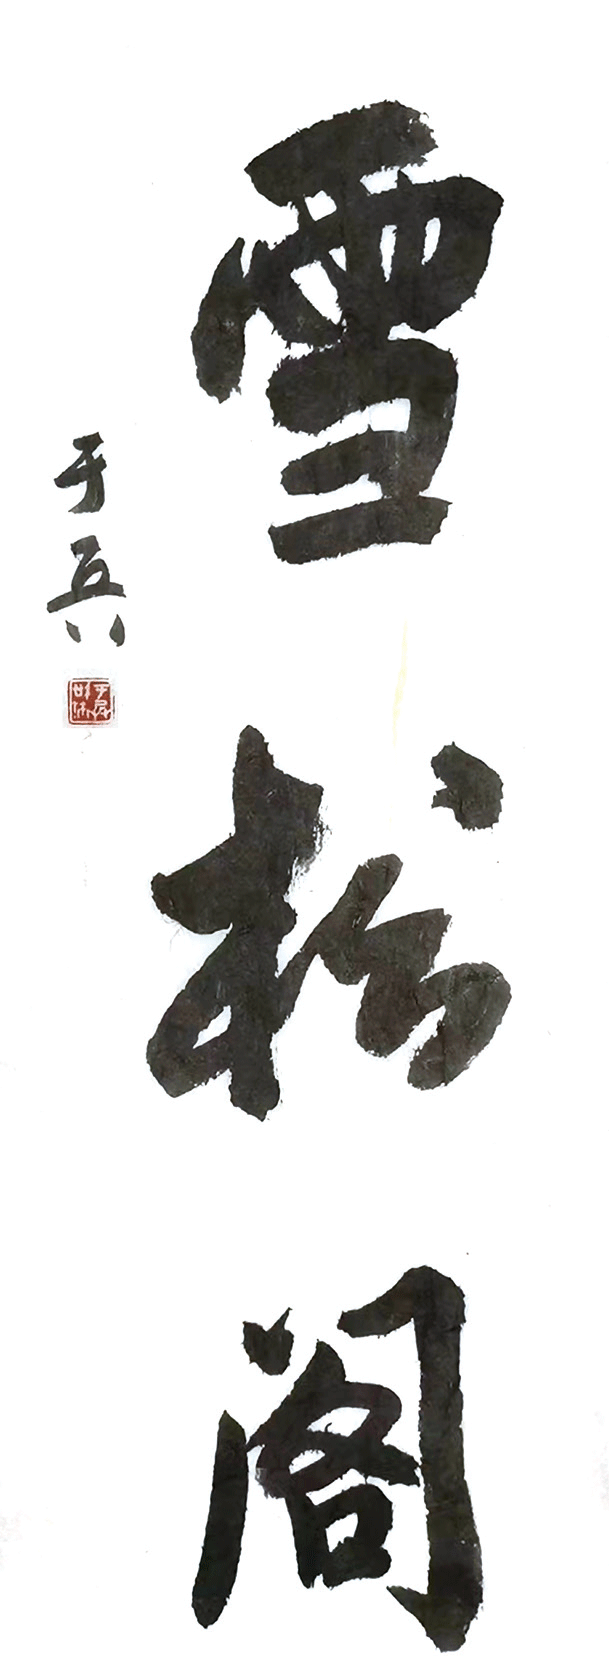 雪松阁
于兵